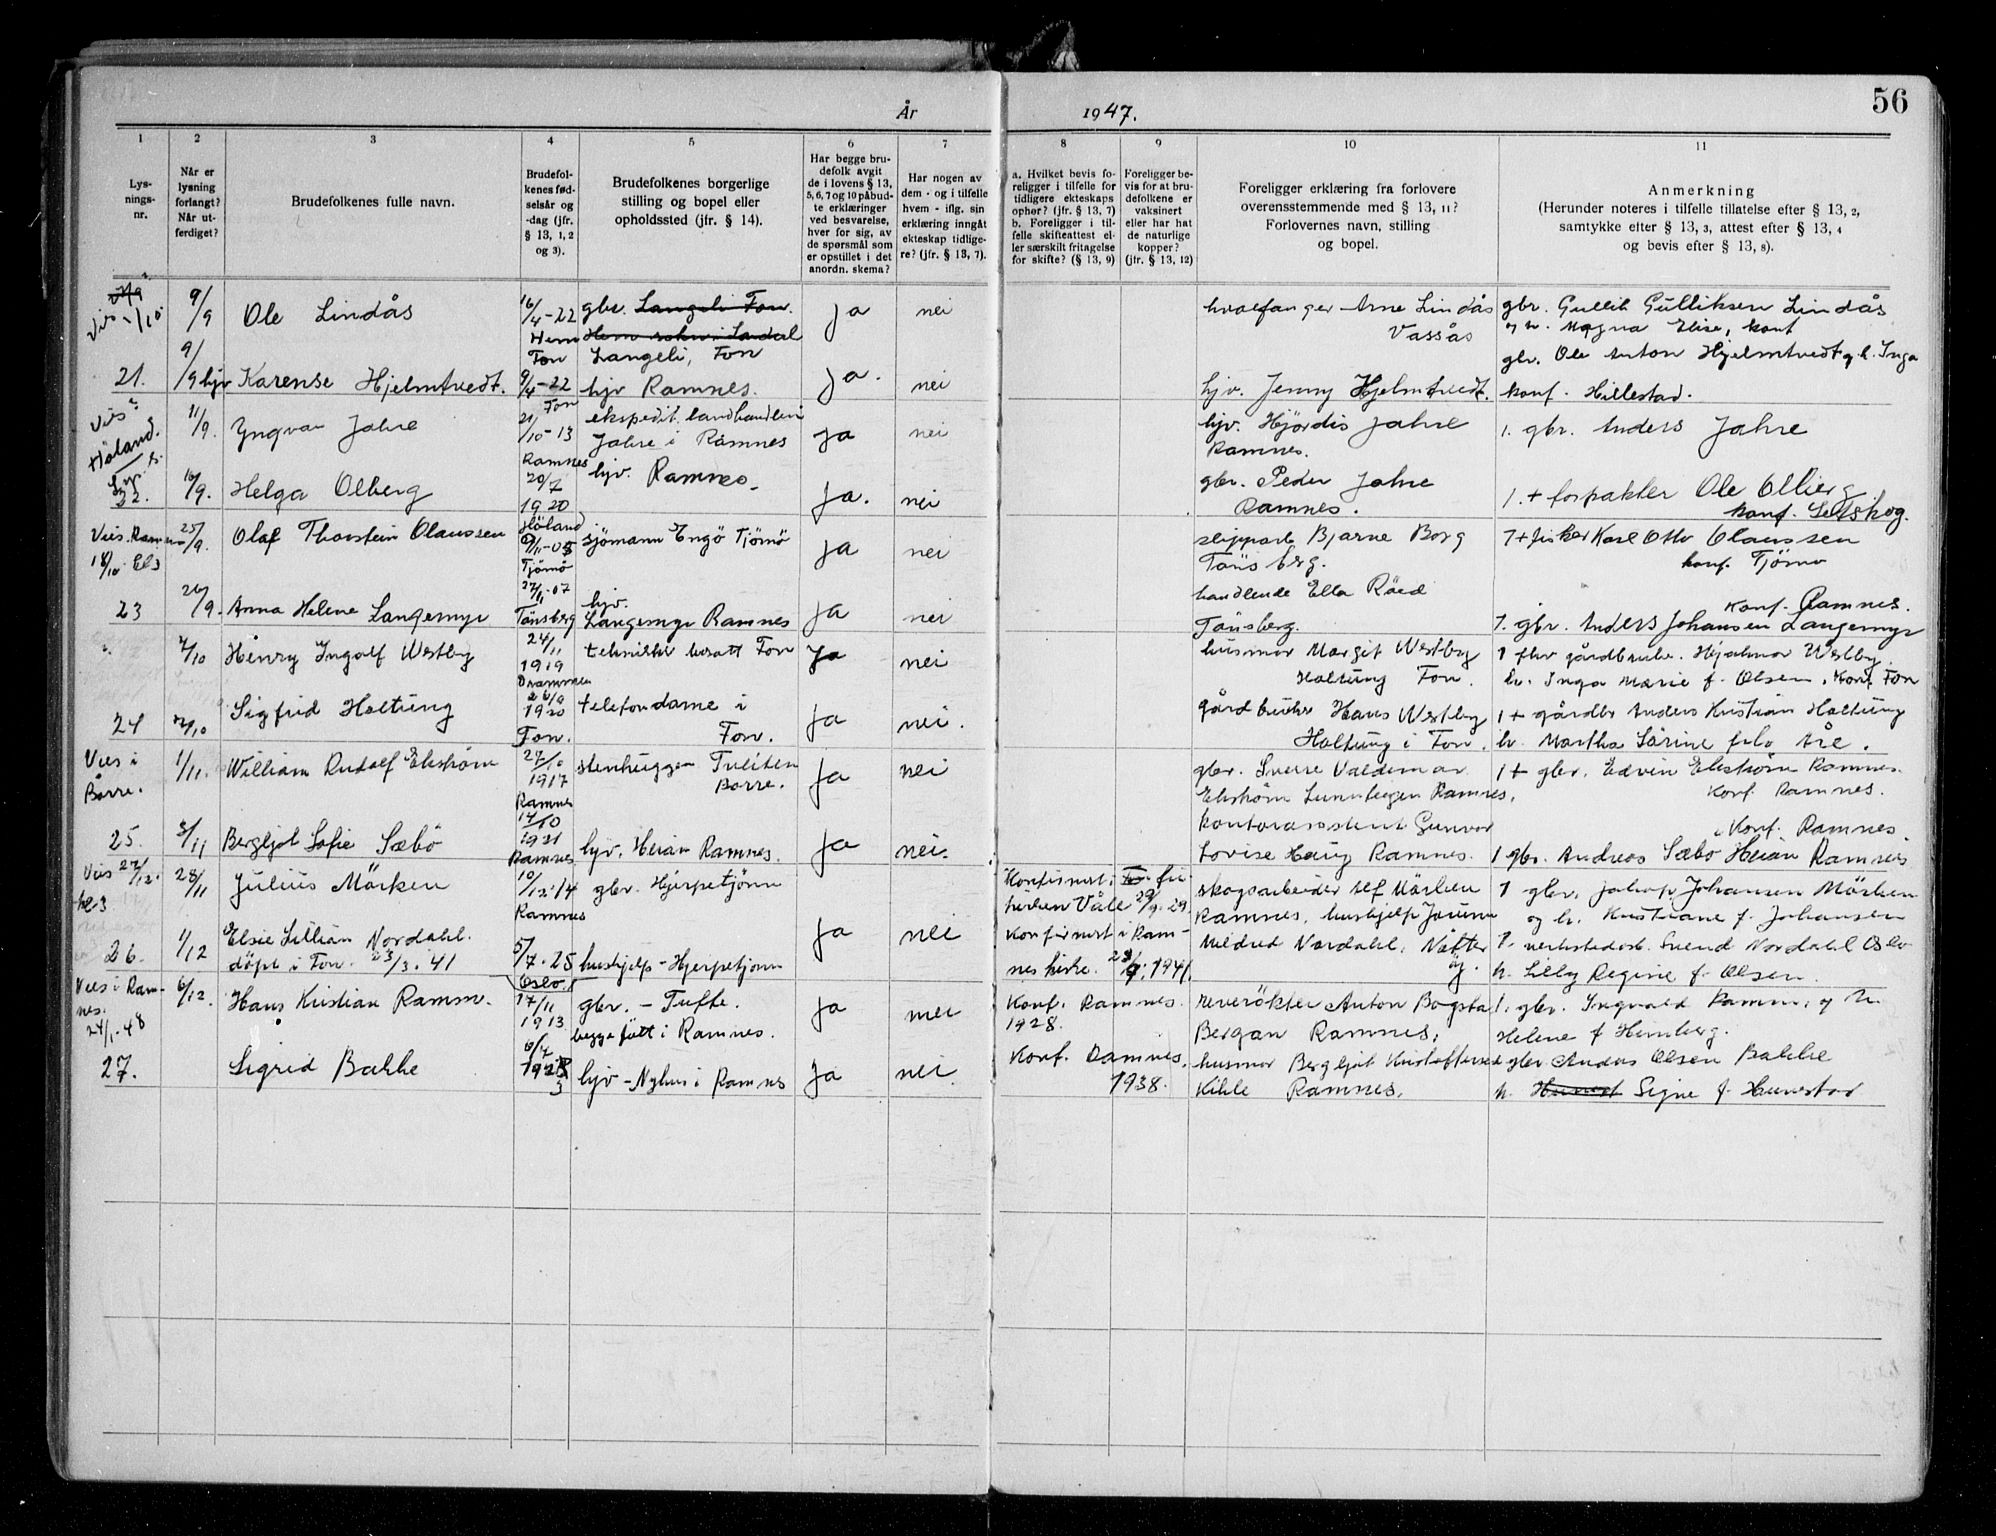 56
År 1947.
1 2 3 4 5 6 7 8 9 10 11
Lys-
nings-
nr.
Når er
lysning
forlangt?
Når ut-
ferdiget?
Brudefolkenes fulle navn.
Brudefol-
kenes fød-
selsår og
-dag (jfr.
§ 13, 1, 2
og 3).
Brudefolkenes borgerlige
stilling og bopel eller
opholdssted (jfr. § 14).
Har begge bru-
defolk avgit
de i lovens § 13,
5, 6, 7 og 10 påbud-
te erklæringer
ved besvarelse,
hver for sig, av
de spørsmål som
er opstillet i det
anordn. skema?
Har nogen av
dem - og i tilfelle
hvem - iflg. sin
erklæring inngått
ekteskap tidlige-
re? (jfr. § 13, 7).
a. Hvilket bevis fo-
religger i tilfelle for
tidligere ekteskaps
ophør? (jfr. § 13, 7)
b. Foreligger i til-
felle skifteattest el-
ler særskilt fritagelse
for skifte? (§ 13, 9)
Foreligger be-
vis for at bru-
defolkene er
vaksinert
eller har hat
de naturlige
kopper?
(jfr. § 13, 12)
Foreligger erklæring fra forlovere
overensstemmende med § 13, 11?
Forlovernes navn, stilling
og bopel.
Anmerkning
(Herunder noteres i tilfelle tillatelse efter § 13, 2,
samtykke efter § 13, 3, attest efter § 13, 4
og bevis efter § 13, 8).
9/9 Ole Lindås 16/4-22 gbr. Langeli Fon. ja nei hvalfanger Arne Lindås gbr. Gullik Gulliksen Lindås
Hem Vassås og h. Magna Elise, konf
Fon Langeli, Fon gbr. Ole Anton Hjelmtvedt og h. Inga
21. 9/9 hjv Karense Hjelmtvedt. 9/4-22 hjv Ramnes. ja. nei hjv. Jenny Hjelmtvedt. konf. Hillestad.
Fon
Vies Höland. 11/9. Yngvar Jahre 21/10-13 ekspedit. landhandleri ja nei hjv. Hjördis Jahre 1. gbr. Anders Jahre
Jahre i Ramnes Ramnes.
Ramnes
22. 16/9. Helga Olberg 20/7 hjv. Ramnes. ja. nei gbr. Peder Jahre 1. + forpakter Ole Olberg
1920 Ramnes. konf. Setskog.
Höland
Vies. Ramnes 25/9. Olaf Thorstein Olaussen sjömann Engö Tjömö ja nei Bjarne Borg 7 + fisker Karl Otto Olaussen
18/10 Tjömö Tönsberg. konf. Tjömö
27/11-07 handlende Ella Röed
23 26/9. Anna Helene Langemyr Tönsberg hjv. ja nei Tönsberg. Konf. Ramnes.
Langemyr Ramnes 7. gbr. Anders Johansen Langemyr
7/10 Henry Ingolf Westby 24/11 Fon ja nei husmor Margit Westby gårdbruker. Hjalmar Westby
1919 Haltung Fon. h. Inga Marie f. Olsen. Konf. Fon
Drammen
24 7/10 Sigfrid Haltung 1920 telefondame i ja nei. gårdbruker Hans Westby 1 + gårdbr Anders Kristian Haltung
Fon. Fon. Haltung i Fon. h. Martha Särine
Vies i 1/11. William Rudolf Ekström 27/10 stenhugger ja nei gbr. Sverre Valdemar 1 + gbr. Edvin Ekström Ramnes.
Borre. 1917 Borre. Ekström Ramnes. Konf. Ramnes.
Ramnes
14/10 kontorassistent Gunvor Konf. Ramnes.
25. 3/11 Bergljot Sofie Sæbö 1921 hjv. Heian Ramnes. ja nei. Lovise Haug Ramnes. 1 gbr. Andreas Sæbö Heian Ramnes
Ramnes
Vies 27/12. 28/11 Julius Mörken 10/12-14 gbr. Hjerpetjönn Konfirmert i fri- skogsarbeider Ramnes, hushjelp 1 gbr. Johansen Mörken
Ramnes kirken Våle og h. Kristiane f. Johansen
26. 1/12 Elsie Lillian Nordahl. 5/7. 25 hushjelp - Hjerpetjönn ja nei Konfirmert i Ram- Mildred Nordahl, Svend Nordahl Oslo
döpt i Fon. 23/3. 41 Oslo. nes kirke. 1941. h. Lilly Regine f. Olsen.
Vies i Ram- 6/12. Hans Kristian Ramm. 17/11 gbr. - Tufte. ja nei Konf. Ramnes. reverökter Anton 1. gbr. Ingvald Ramm. og h.
nes. 24/1-48 1913 begge fött i Ramnes. 1928. Bergan Ramnes. Helene f Hemberg.
27. Sigrid Bakke 6/7 hjv - Nyhus i Ramnes ja nei. Konf. Ramnes. husmor Bergljot Kristoffersen gbr Anders Olsen Bakke
1938. Kihle Ramnes. h. Signe f. Hunestad